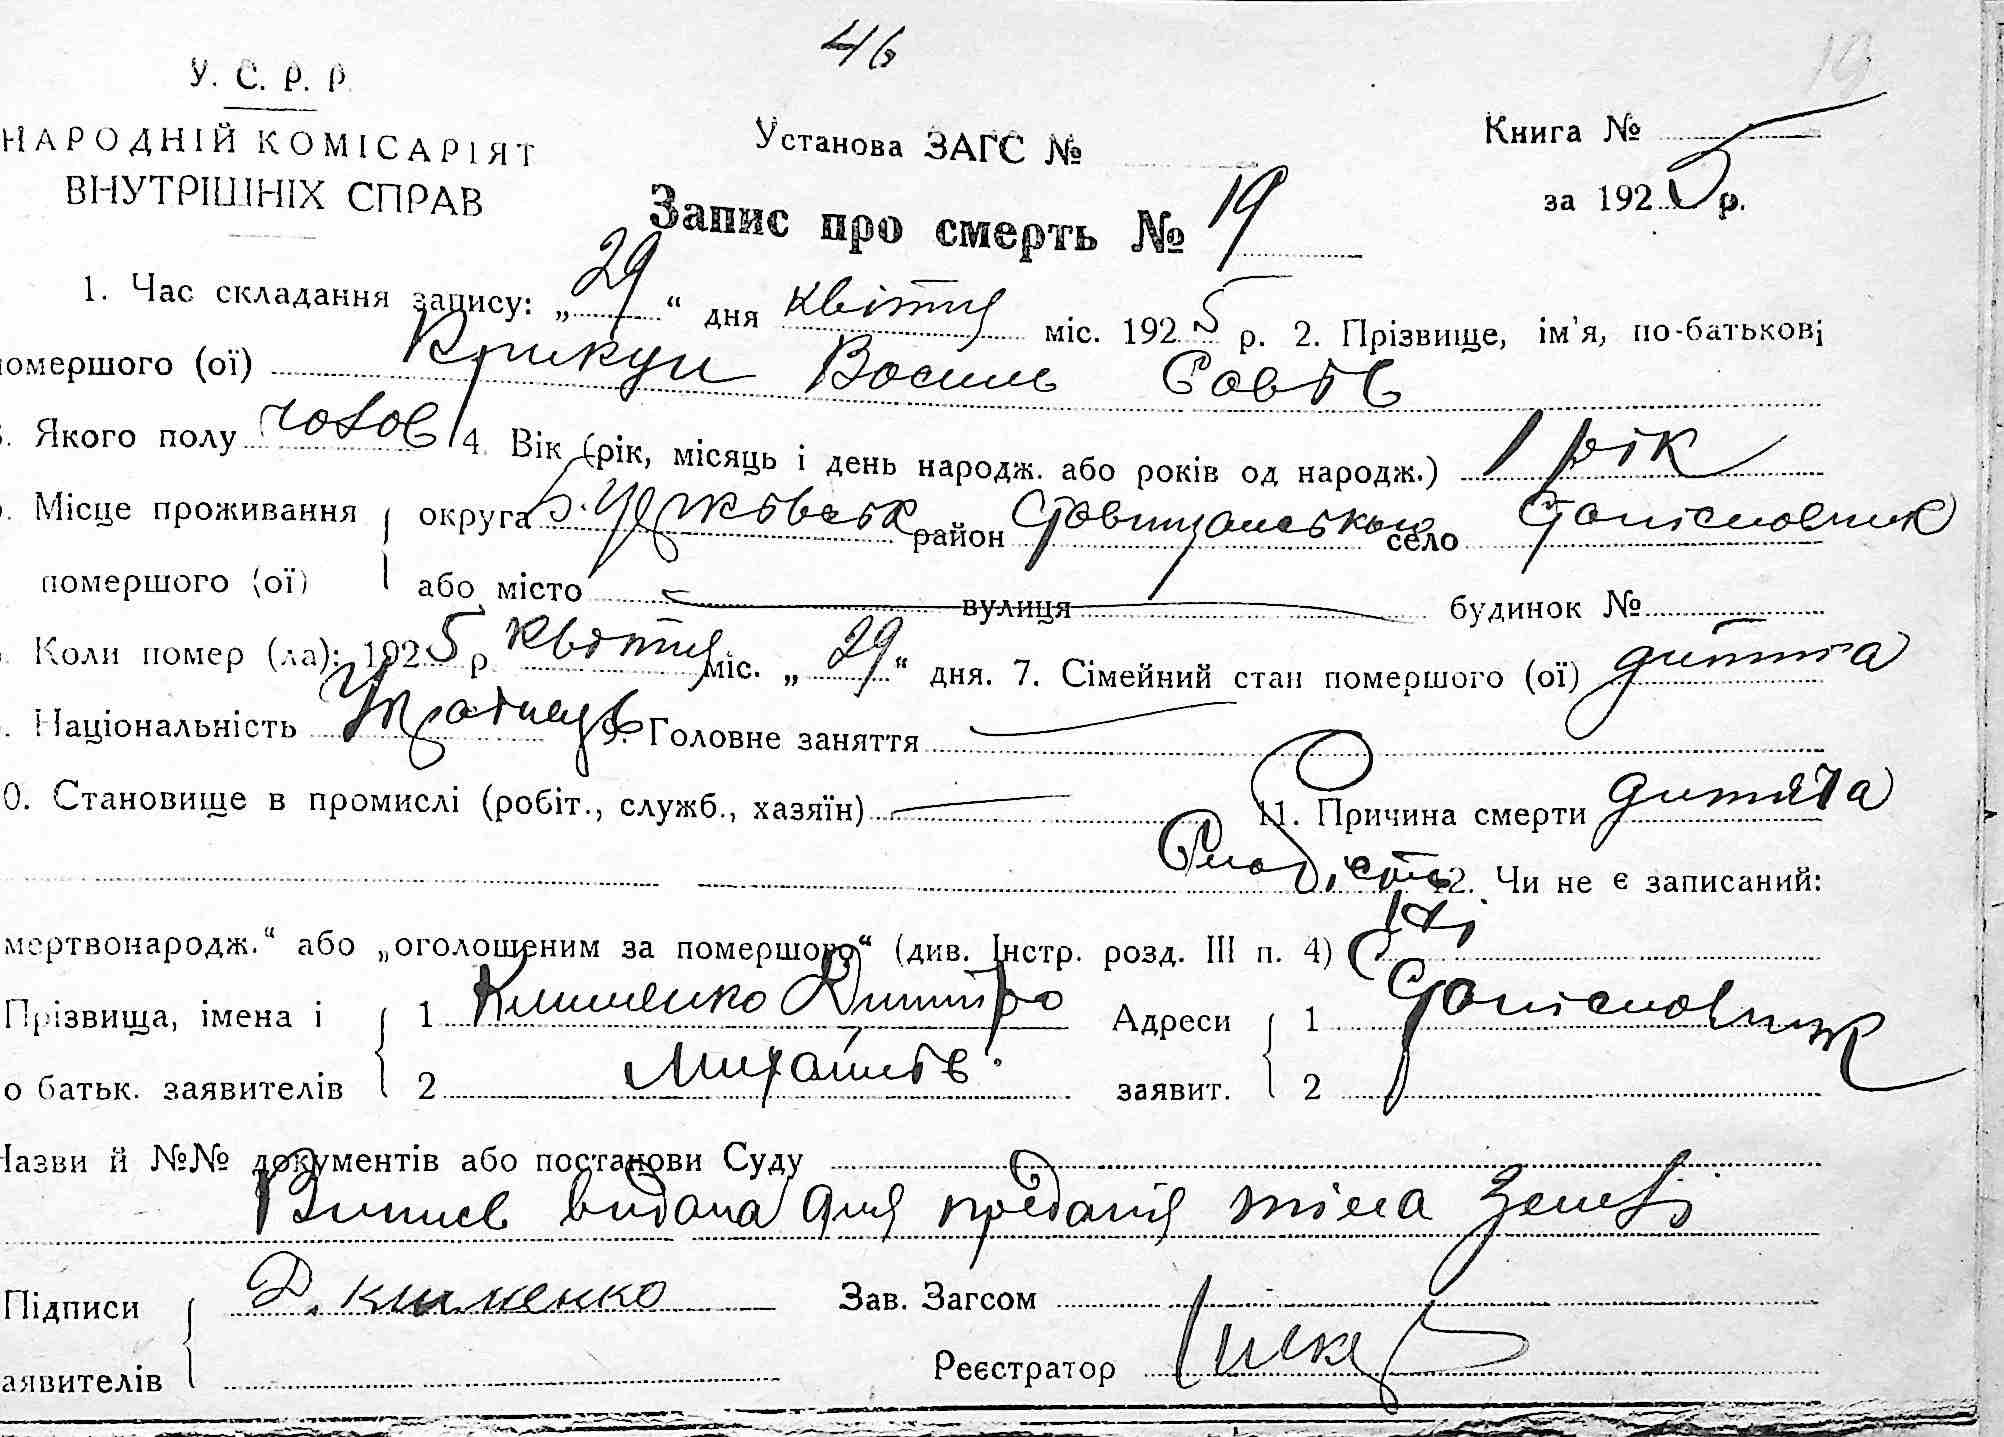 46
19
У. С. Р. Р.
НАРОДНІЙ КОМІСАРІЯТ
ВНУТРІШНІХ СПРАВ
Установа ЗАГС №
Книга №
за 1925 р.
Запис про смерть № 19
1. Час складання запису: „29“ дня квітня міс. 1925 р. 2. Прізвище, ім'я, по-батькові
омершого (ої) Крикун Василь Савів
Якого полу чолов 4. Вік (рік, місяць і день народж. або років од народж.) 1 рік
Місце проживання округа Б. Церківська район Ставищанського село Станіславчик
помершого (ої) або місто вулиця будинок №
Коли помер (ла): 1925 р квітня міс. „29“ дня. 7. Сімейний стан помершого (ої) дитина
Національність Українець 9. Головне заняття
0. Становище в промислі (робіт., служб., хазяїн) 11. Причина смерти дитяча
Слабість 12. Чи не є записаний:
мертвонародж.“ або „оголошеним за помершого“ (див. Інстр. розд. III п. 4)
Прізвища, імена і 1 Клименко Дмитро Адреси 1 Станіславчик
о батьк. заявителів 2 Михайлів. заявит. 2
Назви й №№ документів або постанови Суду
Випись видана для предання тіла землі
Підписи Д. клименко Зав. Загсом
аявителів Реєстратор